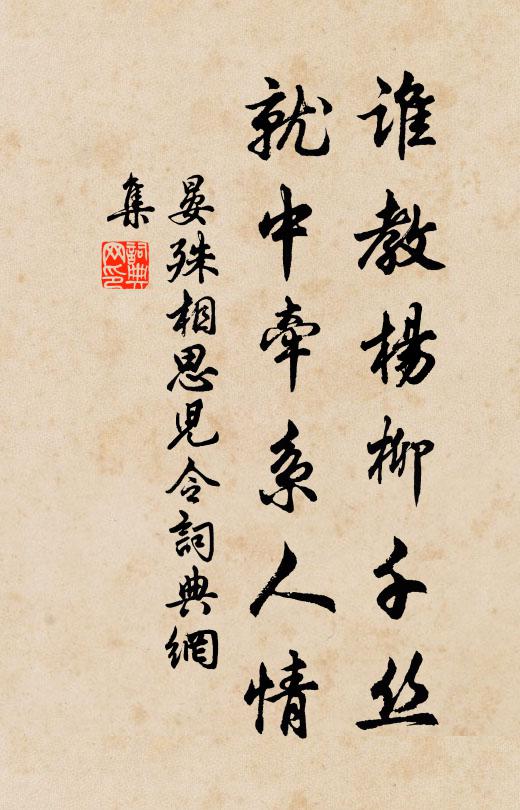 谁教楊柳千丝
就中牽系人情
晏殊相思兒令詞典網
集
詞典網印